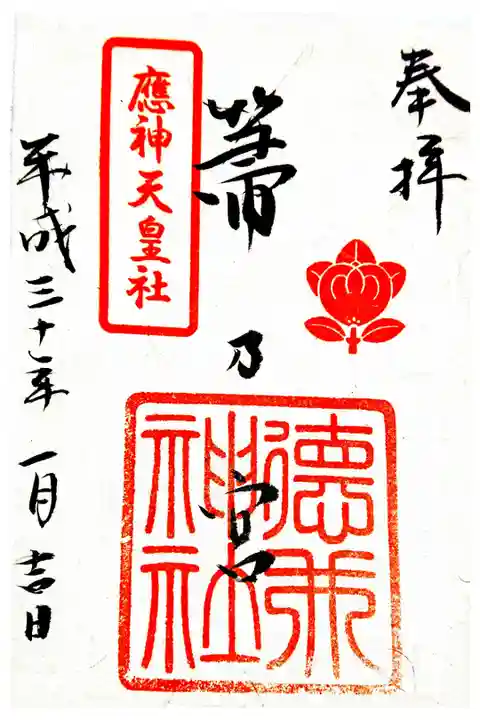 奉拝
箒乃宮
神社
應神天皇社
平成三十年一月吉日